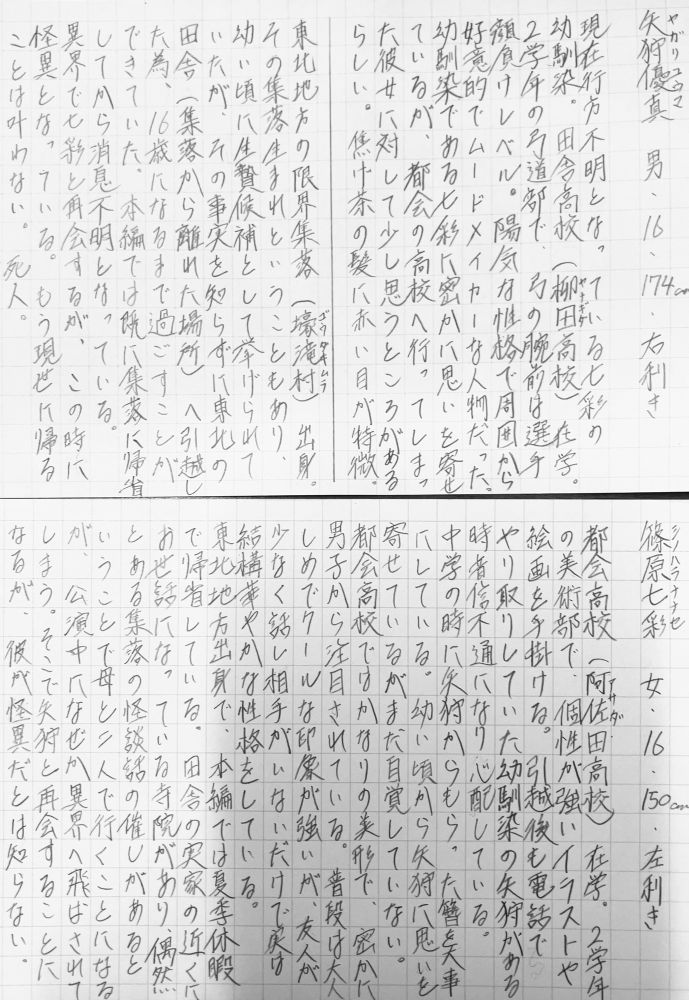 ヤガリ ユウマ
矢狩優真 男・16・174cm・右利き
現在行方不明となっている七彩の
幼馴染。田舎高校（柳田高校）在学。
ヤナギダ
2学年の弓道部で、弓の腕前は選手
顔負けレベル。陽気な性格で周囲から
好意的でムードメイカーな人物だった。
幼馴染である七彩に密かに思いを寄せ
ているが、都会の高校へ行ってしまっ
た彼女に対して少し思うところがある
らしい。焦げ茶の髪に赤い目が特徴。
東北地方の限界集落（壕滝村）出身。
ゴウタキムラ
その集落生まれということもあり、
幼い頃に生贄候補として挙げられて
いたが、その事実を知らずに東北の
田舎（集落から離れた場所）へ引越し
た為、16歳になるまで過ごすことが
できていた。本編では既に集落に帰省
してから消息不明となっている。
異界で七彩と再会するが、この時に
怪異となっている。もう現世に帰る
ことは叶わない。死人。
シノハラ ナナセ
篠原七彩 女・16・150cm・左利き
都会高校（阿佐田高校）在学。2学年
アサダ
の美術部で、個性が強いイラストや
絵画を手掛ける。引越後も電話で
やり取りしていた幼馴染の矢狩がある
時音信不通になり心配している。
中学の時に矢狩からもらった簪を大事
にしている。幼い頃から矢狩に思いを
寄せているがまだ自覚していない。
都会高校ではかなりの美形で、密かに
男子から注目されている。普段は大人
しめでクールな印象が強いが、友人が
少なく話し相手がいないだけで実は
結構華やかな性格をしている。
東北地方出身で、本編では夏季休暇
で帰省している。田舎の実家の近くに
お世話になっている寺院があり、偶然
とある集落の怪談話の催しがあると
いうことで母と二人で行くことになる
が、公演中になぜか異界へ飛ばされて
しまう。そこで矢狩と再会することに
なるが、彼が怪異だとは知らない。